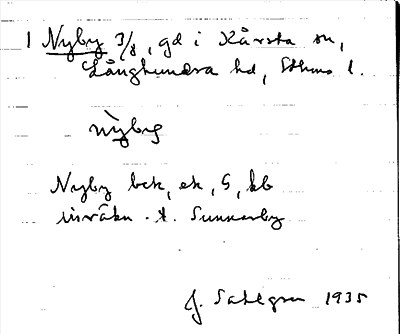 1 Nyby 3/8, gd i Kårsta sn,
Långhundra hd, Sthms l.
nyby
Nyby bek, ek, G, kb
inräkn. t. Sunnanby
J. Sahlgren 1935